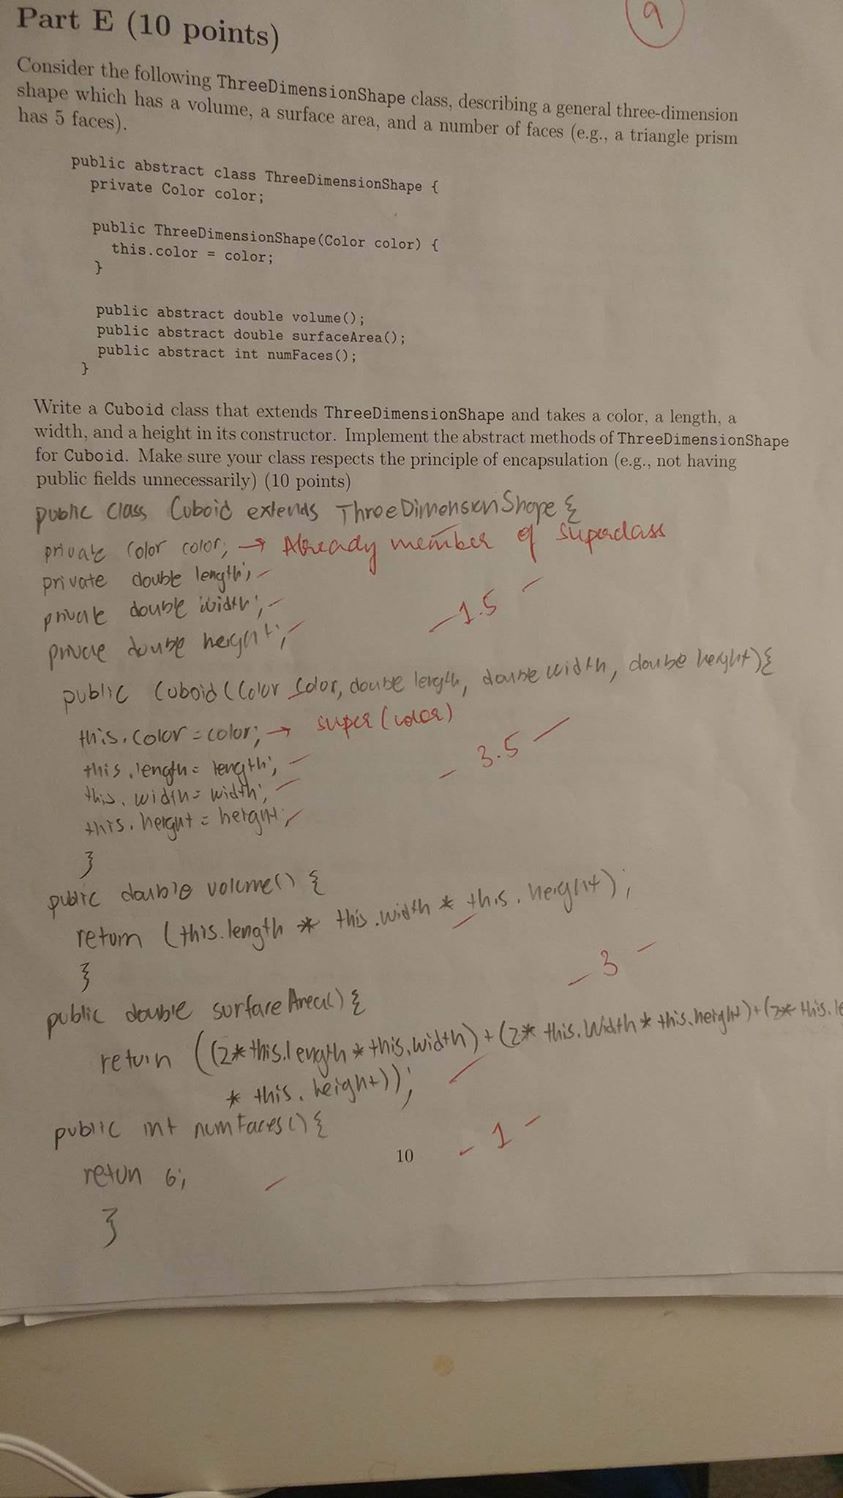 Part E (10 points)
9
Consider the following ThreeDimensionShape class, describing a general three-dimension
shape which has a volume, a surface area, and a number of faces (e.g., a triangle prism
has 5 faces).
public abstract class ThreeDimensionShape {
private Color color;
public ThreeDimensionShape(Color color) {
this.color = color;
}
public abstract double volume();
public abstract double surfaceArea();
public abstract int numFaces();
}
Write a Cuboid class that extends ThreeDimensionShape and takes a color, a length, a
width, and a height in its constructor. Implement the abstract methods of ThreeDimensionShape
for Cuboid. Make sure your class respects the principle of encapsulation (e.g., not having
public fields unnecessarily) (10 points)
public class Cuboid extends ThreeDimensionShape {
private Color color; → Already member of superclass
private double length;
private double width;
private double height;
- 1.5 -
public Cuboid (Color color, double length, double width, double height) {
this.color = color; → super (color)
this.length = length;
this.width = width;
this.height = height;
- 3.5 -
}
public double volume() {
return (this.length * this.width * this.height);
}
- 3 -
public double surfaceArea() {
return ((2*this.length * this.width) + (2* this.width * this.height) + (2* this.le
* this.height));
public int numFaces() {
- 1 -
10
retun 6;
}